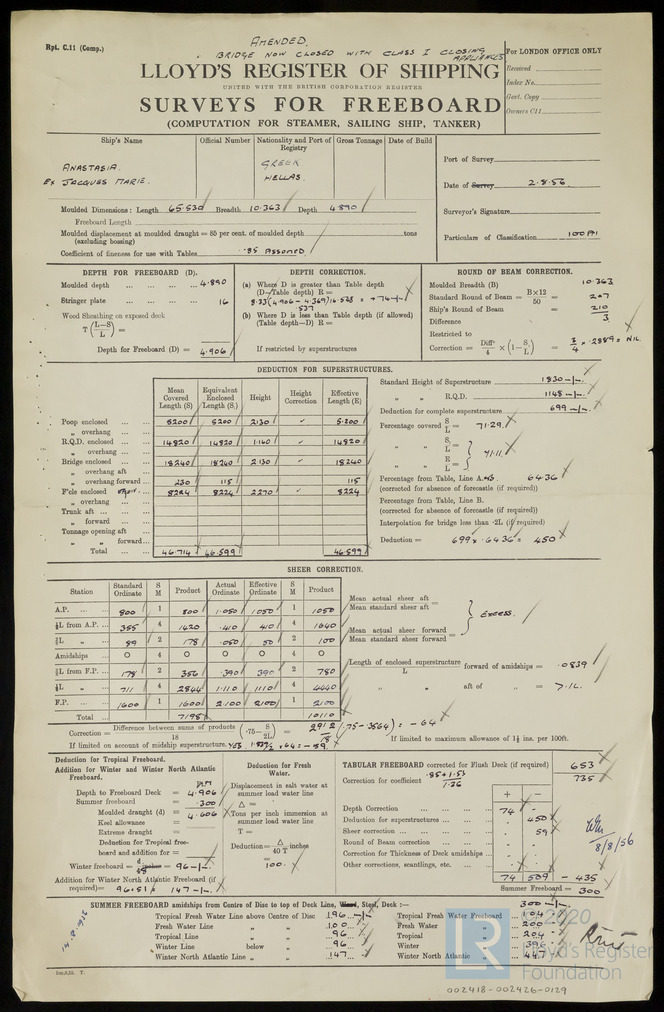 Rpt. C.11 (Comp.)
AMENDED.
BRIDGE NOW CLOSED WITH CLASS I CLOSING APPLIANCES
LLOYD'S REGISTER OF SHIPPING
UNITED WITH THE BRITISH CORPORATION REGISTER
SURVEYS FOR FREEBOARD
(COMPUTATION FOR STEAMER, SAILING SHIP, TANKER)
For LONDON OFFICE ONLY
Received
Index No.
Govt. Copy
Owners C11
Ship's Name Official Number Nationality and Port of Registry Gross Tonnage Date of Build
ANASTASIA. GREEK
EX JACQUES MARIE. HELLAS.
Port of Survey
Date of Survey 2.8.56
Surveyor's Signature
Particulars of Classification 100A1
Moulded Dimensions: Length 65.530 Breadth 10.363 Depth 4.890
Freeboard Length
Moulded displacement at moulded draught = 85 per cent. of moulded depth tons
(excluding bossing)
Coefficient of fineness for use with Tables .85 Assumed
DEPTH FOR FREEBOARD (D).
Moulded depth ... 4.890
Stringer plate ... 16
Wood Sheathing on exposed deck
T (L-S / L) =
Depth for Freeboard (D) = 4.906
DEPTH CORRECTION.
(a) Where D is greater than Table depth
(D-Table depth) R =
8.33 (4.906 - 4.369) 16.528 = +74 -/-
537
(b) Where D is less than Table depth (if allowed)
(Table depth-D) R =
If restricted by superstructures
ROUND OF BEAM CORRECTION.
Moulded Breadth (B) 10.363
Standard Round of Beam = B×12 / 50 = 207
Ship's Round of Beam = 210
Difference 3
Restricted to
Correction = Diff / 4 × (1 - S / L) = 3/4 × .2889 = NIL.
DEDUCTION FOR SUPERSTRUCTURES.
Mean Covered Length (S) Equivalent Enclosed Length (S₁) Height Height Correction Effective Length (E)
Poop enclosed 5200 5200 2130 5.200
„ overhang
R.Q.D. enclosed 14820 14820 1.140 14820
„ overhang
Bridge enclosed 18240 18240 2130 18240
„ overhang aft
„ overhang forward 230 115 115
F'cle enclosed 8224 8224 2270 8224
„ overhang
Trunk aft
„ forward
Tonnage opening aft
„ „ forward
Total 46.714 46.599 46.599
Standard Height of Superstructure 1830 -/-
„ „ R.Q.D. 1145 -/-
Deduction for complete superstructure 699 -/-
Percentage covered S / L = 71.29
„ „ S₁ / L = 71.11
„ „ E / L =
Percentage from Table, Line A. 64.36
(corrected for absence of forecastle (if required))
Percentage from Table, Line B.
(corrected for absence of forecastle (if required))
Interpolation for bridge less than ·2L (if required)
Deduction = 699 × .6436 = 450
SHEER CORRECTION.
Station Standard Ordinate S M Product Actual Ordinate Effective Ordinate S M Product
A.P. 800 1 800 1.050 1050 1 1050
⅙L from A.P. 355 4 1420 .410 410 4 1640
⅓L „ 89 2 178 .050 50 2 100
Amidships 0 4 0 0 0 4 0
⅓L from F.P. 178 2 356 .390 390 2 780
⅙L „ 711 4 2844 1.110 1110 4 4440
F.P. 1600 1 1600 2.100 2100 1 2100
Total 7198 10110
Mean actual sheer aft =
Mean standard sheer aft
Mean actual sheer forward =
Mean standard sheer forward
EXCESS.
Length of enclosed superstructure / L forward of amidships = .0839
„ „ aft of „ =
Correction = Difference between sums of products / 18 (·75 - S / 2L) = 2912 / 18 (.75 - .3564) = -64
If limited on account of midship superstructure. YES
If limited to maximum allowance of 1½ ins. per 100ft.
Deduction for Tropical Freeboard.
Addition for Winter and Winter North Atlantic Freeboard.
Depth to Freeboard Deck = 4.906
Summer freeboard = .300
Moulded draught (d) = 4.606
Keel allowance =
Extreme draught =
Deduction for Tropical freeboard and addition for =
Winter freeboard = d / 48 = 96 -/-
Addition for Winter North Atlantic Freeboard (if required) = 96+51 147 -/-
Deduction for Fresh Water.
Displacement in salt water at summer load water line
Δ =
Tons per inch immersion at summer load water line
T =
Deduction = Δ / 40 T inches
= 100.
TABULAR FREEBOARD corrected for Flush Deck (if required) 653
Correction for coefficient .85+1.53 / 1.36 735
+ -
Depth Correction 74 -
Deduction for superstructures - 450
Sheer correction - 59
Round of Beam correction
Correction for Thickness of Deck amidships
Other corrections, scantlings, etc.
74 509 - 435
Summer Freeboard = 300
8/8/56
SUMMER FREEBOARD amidships from Centre of Disc to top of Deck Line, Wood, Steel, Deck :— 300 -/-
Tropical Fresh Water Line above Centre of Disc 196 -/-
Fresh Water Line „ „ 100
Tropical Line „ „ 96
Winter Line below „ 96
Winter North Atlantic Line „ „ 147
Tropical Fresh Water Freeboard 104
Fresh Water „ 200
Tropical „ 204
Winter „ 396
Winter North Atlantic „ 447
© 2020
LR
Lloyd's Register
Foundation
002418-002426-0129